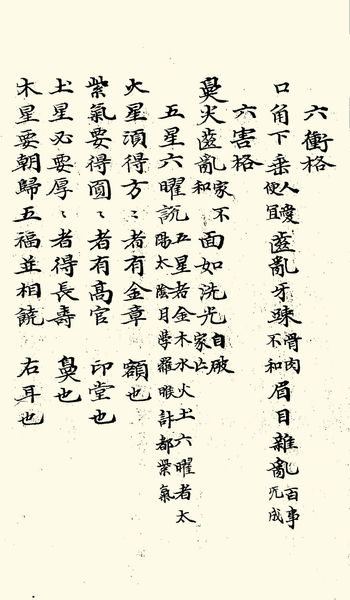 六衝格
口角下垂人愛便宜 齒亂牙踈骨肉不和 眉目雜亂百事無成
六害格
鼻尖齒亂家不和 面如洗光自破家亡
五星六曜說五星者金木水火土六曜者太陽太陰月孛羅睺計都紫氣
火星須得方〻者有金章 額也
紫氣要得圓〻者有高官 印堂也
土星必要厚〻者得長壽 鼻也
木星要朝歸五福並相饒 右耳也